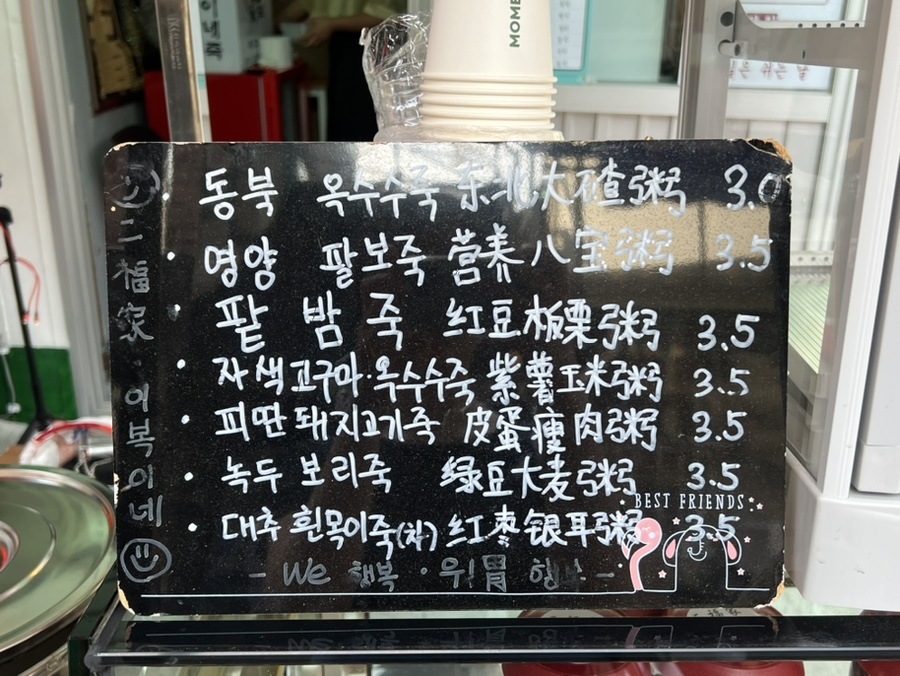 MOME
동북 옥수수죽 东北大碴粥 3.0
영양 팔보죽 营养八宝粥 3.5
팥 밤 죽 红豆板栗粥 3.5
자색고구마·옥수수죽 紫薯玉米粥 3.5
피딴돼지고기죽 皮蛋瘦肉粥 3.5
녹두 보리죽 绿豆大麦粥 3.5
대추흰목이죽(차) 红枣银耳粥 3.5
- We 행복 · 위胃 행복 -
BEST FRIENDS
二福家·이복이네